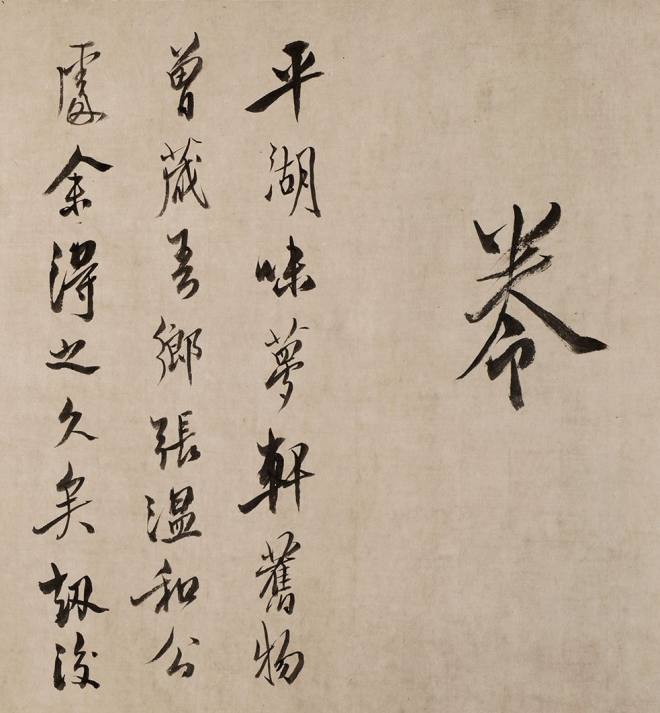 卷
平湖味夢軒舊物
曾藏吾鄉張溫和公
處余得之久矣劫後